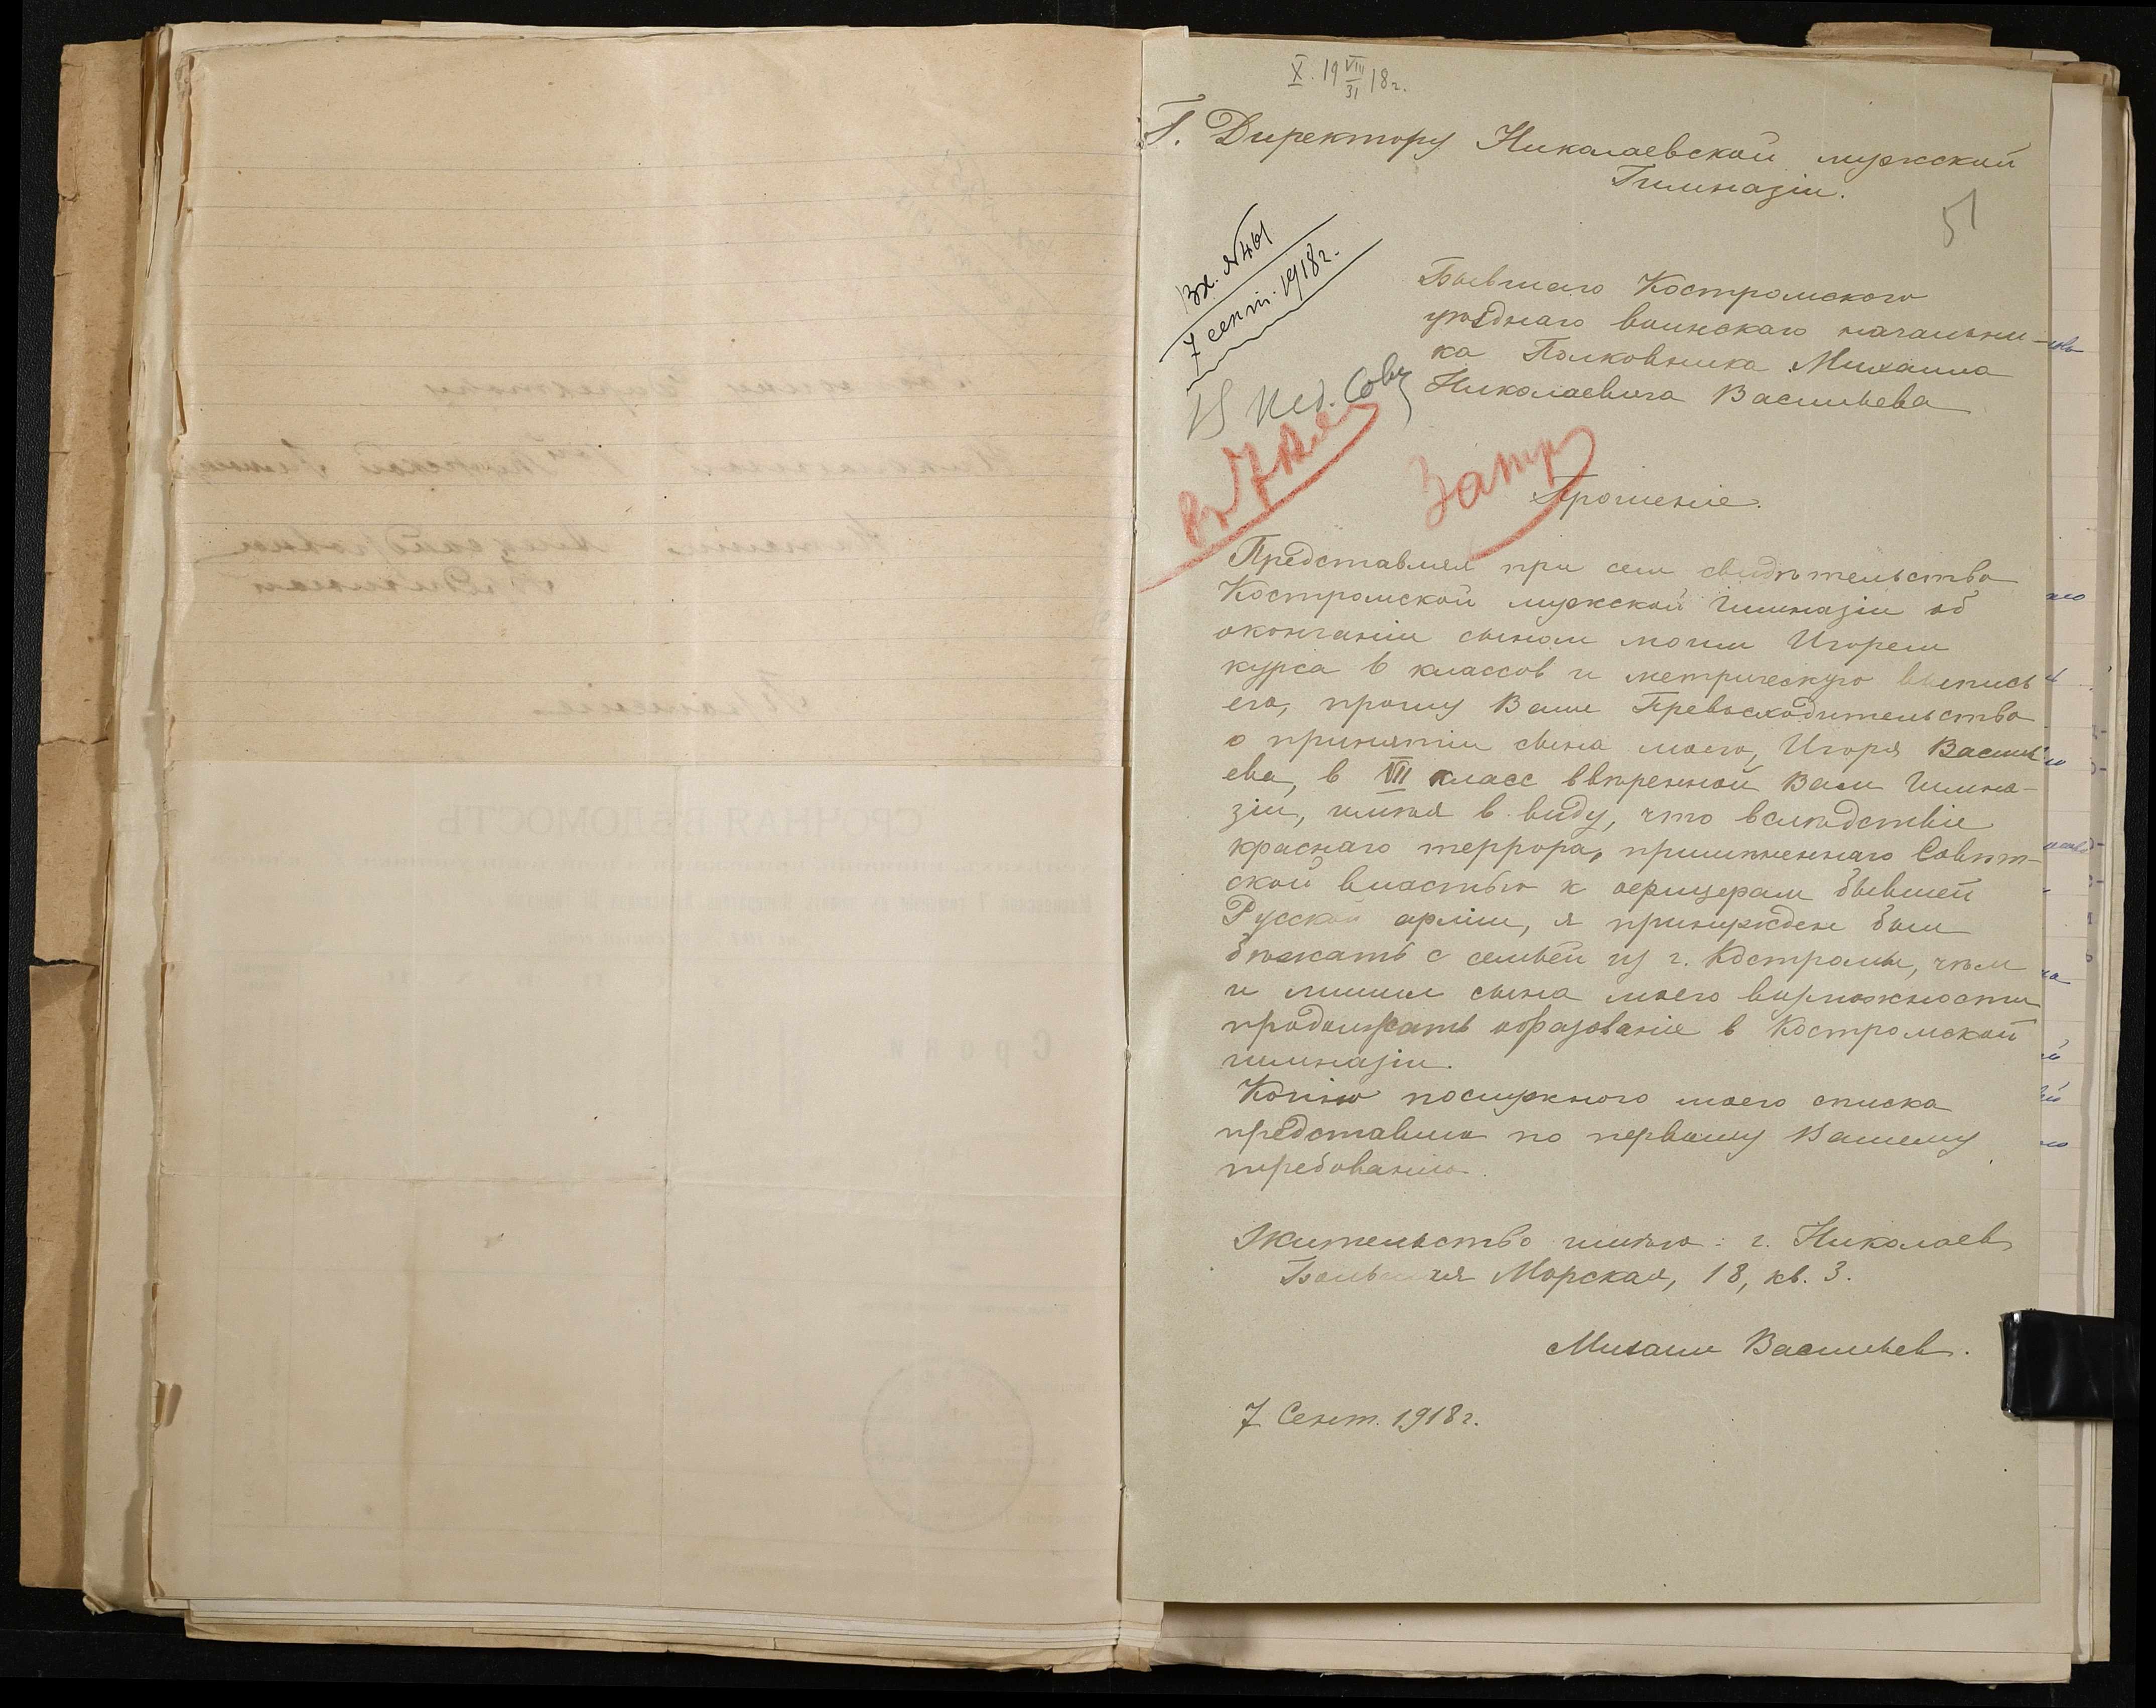 X. 19 VIII/31 18 г.
Г. Директору Николаевской мужской
Гимназіи.
51
Вх. №461
7 сент. 1918 г.
Бывшаго Костромского
уѣзднаго воинскаго начальни-
ка Полковника Михаила
Николаевича Васильева
В Пед. Сов
въ 7 кл
Затр
Прошеніе.
Представляя при сем свидѣтельство
Костромской мужской гимназіи об
окончаніи сыном моим Игорем
курса 6 классов и метрическую выпись
его, прошу Ваше Превосходительство
о принятіи сына моего, Игоря Василь-
ева, в VII класс ввѣренной Вам гимна-
зіи, имѣя в виду, что вслѣдствіе
краснаго террора, примѣненнаго Совѣт-
ской властью к офицерам бывшей
Русской арміи, я принужден был
бѣжать с семьей из г. Костромы, чѣм
и лишил сына моего возможности
продолжать образованіе в Костромской
гимназіи.
Копію послужного моего списка
представлю по первому Вашему
требованію.
Жительство имѣю: г. Николаев
Большая Морская, 18, кв. 3.
Михаил Васильев.
7 Сент. 1918 г.